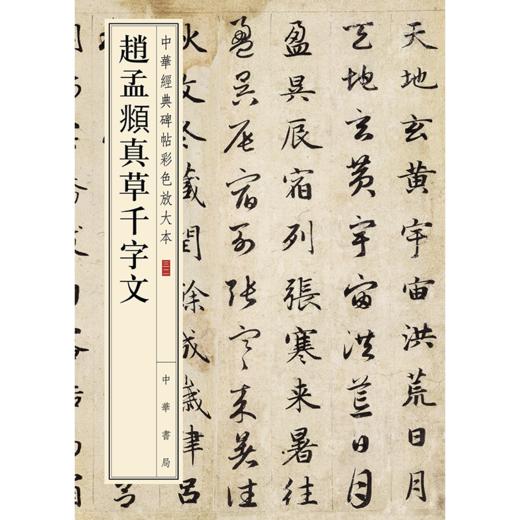 天地玄黃宇宙洪荒日月
天地玄黃宇宙洪荒日月
盈昃辰宿列張寒来暑往
盈昃辰宿列張寒来暑往
秋收冬藏閏餘成歲律呂
中華經典碑帖彩色放大本
趙孟頫真草千字文
中華書局